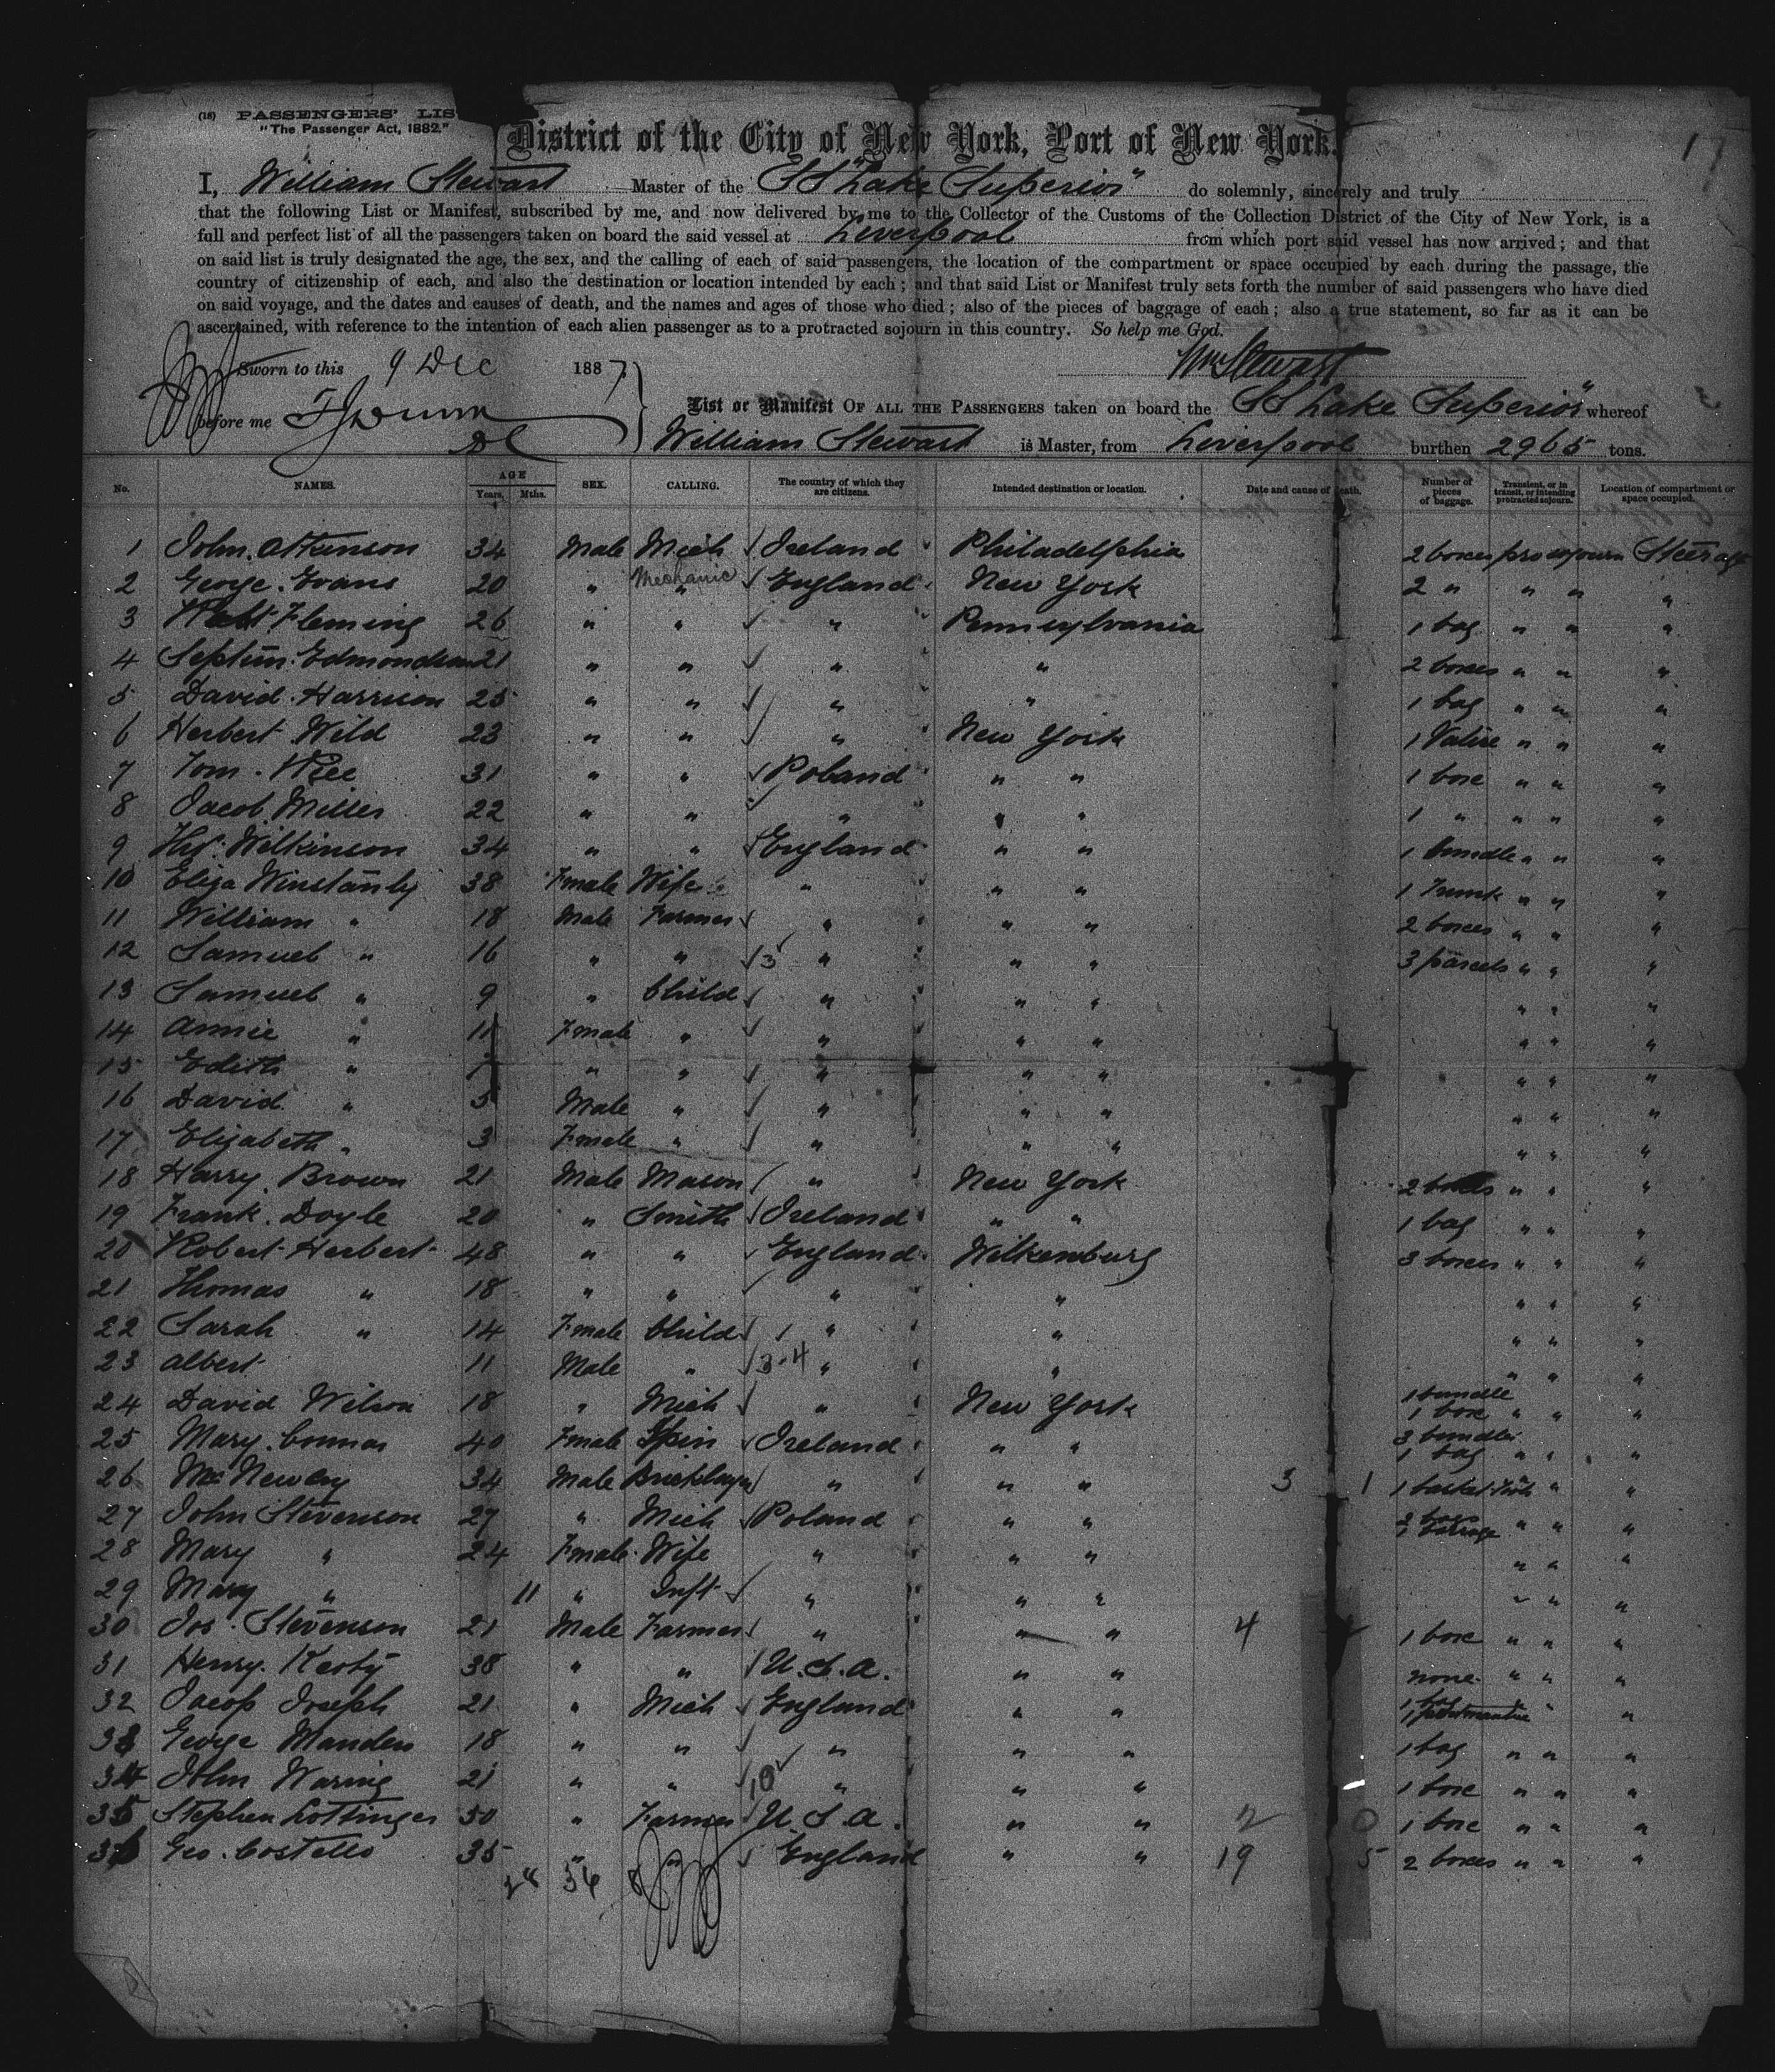 (18) PASSENGERS' LIS
"The Passenger Act, 1882."
17
District of the City of New York, Port of New York.
I, William Stewart Master of the SS "Lake Superior" do solemnly, sincerely and truly
that the following List or Manifest, subscribed by me, and now delivered by me to the Collector of the Customs of the Collection District of the City of New York, is a
full and perfect list of all the passengers taken on board the said vessel at Liverpool from which port said vessel has now arrived; and that
on said list is truly designated the age, the sex, and the calling of each of said passengers, the location of the compartment or space occupied by each during the passage, the
country of citizenship of each, and also the destination or location intended by each; and that said List or Manifest truly sets forth the number of said passengers who have died
on said voyage, and the dates and causes of death, and the names and ages of those who died; also of the pieces of baggage of each; also a true statement, so far as it can be
ascertained, with reference to the intention of each alien passenger as to a protracted sojourn in this country. So help me God.
Sworn to this 9 Dec 1887. Wm Stewart
before me
List or Manifest OF ALL THE PASSENGERS taken on board the SS Lake Superior" whereof
William Stewart is Master, from Liverpool burthen 2965 tons.
No. NAMES. AGE Years, Mths. SEX. CALLING. The country of which they are citizens. Intended destination or location. Date and cause of death. Number of pieces of baggage. Transient, or in transit, or intending protracted sojourn. Location of compartment or space occupied.
1 John Atkinson 34 Male Mech Ireland Philadelphia 2 boxes pro sojourn Steerage
2 George Evans 20 " Mechanic " England New York 2 " " " "
3 Fleming 26 " " " Pennsylvania 1 bag " " "
4 Septim. Edmondson 21 " " " " 2 boxes " " "
5 David Harrison 25 " " " " 1 bag " " "
6 Herbert Wild 23 " " " New York 1 Valise " " "
7 Tom 31 " " Poland " " 1 box " " "
8 Jacob Miller 22 " " " " " 1 " " " "
9 Hy. Wilkinson 34 " " England " " 1 bundle " " "
10 Eliza Winstanly 38 Fmale Wife " " " 1 Trunk " " "
11 William " 18 Male Farmer " " " 2 boxes " " "
12 Samuel " 16 " " 13 " " " 3 parcels " " "
13 Samuel " 9 " Child " " " " " "
14 Annie " 11 Fmale " " " " " " "
15 Edith " " " " " " " " "
16 David " 5 Male " " " " " " "
17 Elizabeth " 3 Fmale " " " " " " "
18 Harry Brown 21 Male Mason " New York 2 boxes " " "
19 Frank Doyle 20 " Smith Ireland " " 1 bag " " "
20 Robert Herbert 48 " " England Wilkenburg 3 boxes " " "
21 Thomas " 18 " " " " " " "
22 Sarah " 14 Fmale Child 1 " " " " "
23 Albert 11 Male " 3-4 " " " " "
24 David Wilson 18 " Mech " New York 1 bundle 1 box " " "
25 Mary Connor 40 Fmale Spin Ireland " " 3 bundles 1 bag " " "
26 Mc Newby 34 Male Bricklayer " " " 3 1 1 basket " "
27 John Stevenson 27 " Mech Poland " " " " "
28 Mary " 24 Fmale Wife " " " " " "
29 Mary " 11 " Inft " " " " " "
30 Jos. Stevenson 21 Male Farmer " " " 4 1 box " " "
31 Henry 38 " " U.S.A. " " none " " "
32 Jacob Joseph 21 " Mech England " " 1 bag 1 portmantue " "
33 George Manders 18 " " " " " 1 bag " " "
34 John Waring 21 " " 10 " " " 1 box " " "
35 Stephen Lottinger 50 " Farmer U.S.A. " " 2 0 1 box " " "
36 Geo. Costello 35 " " England " " 19 5 2 boxes " " "
36